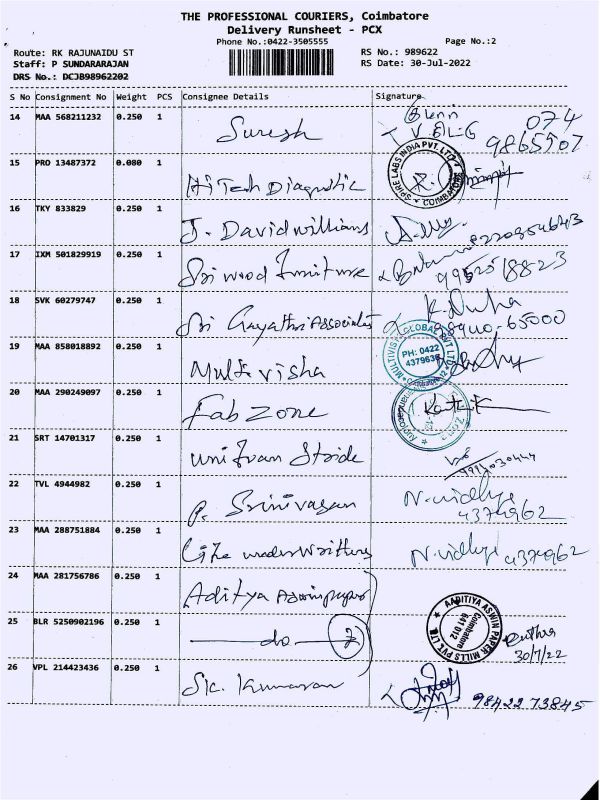 THE PROFESSIONAL COURIERS, Coimbatore
Delivery Runsheet - PCX
Phone No.:0422-3505555
Page No.:2
Route: RK RAJUNAIDU ST
RS No.: 989622
Staff: P SUNDARARAJAN
RS Date: 30-Jul-2022
DRS No.: DCJB98962202
S No Consignment No Weight PCS Consignee Details Signature
14 MAA 568211232 0.250 1 Suresh
074
15 PRO 13487372 0.080 1 HiTech Diagnostic
SPIRE LABS INDIA PVT. LTD COIMBATORE
16 TKY 833829 0.250 1 J. Davidwilliams
17 IXM 501829919 0.250 1 Sri wood furniture
18 SVK 60279747 0.250 1 Sri Gayathri Associates
65000
19 MAA 858018892 0.250 1 Multivisha
PH: 0422
20 MAA 290249097 0.250 1 Fab Zone
21 SRT 14701317 0.250 1
22 TVL 4944982 0.250 1 P. Srinivasan N.vidhya
4374962
23 MAA 288751884 0.250 1 N.vidhya 4374962
24 MAA 281756786 0.250 1 Aditya
25 BLR 5250902196 0.250 1 do
AADITIYA ASWIN PAPER MILLS PVT LTD Coimbatore 641 012
30/7/22
26 VPL 214423436 0.250 1 Kumaran 98422 73845